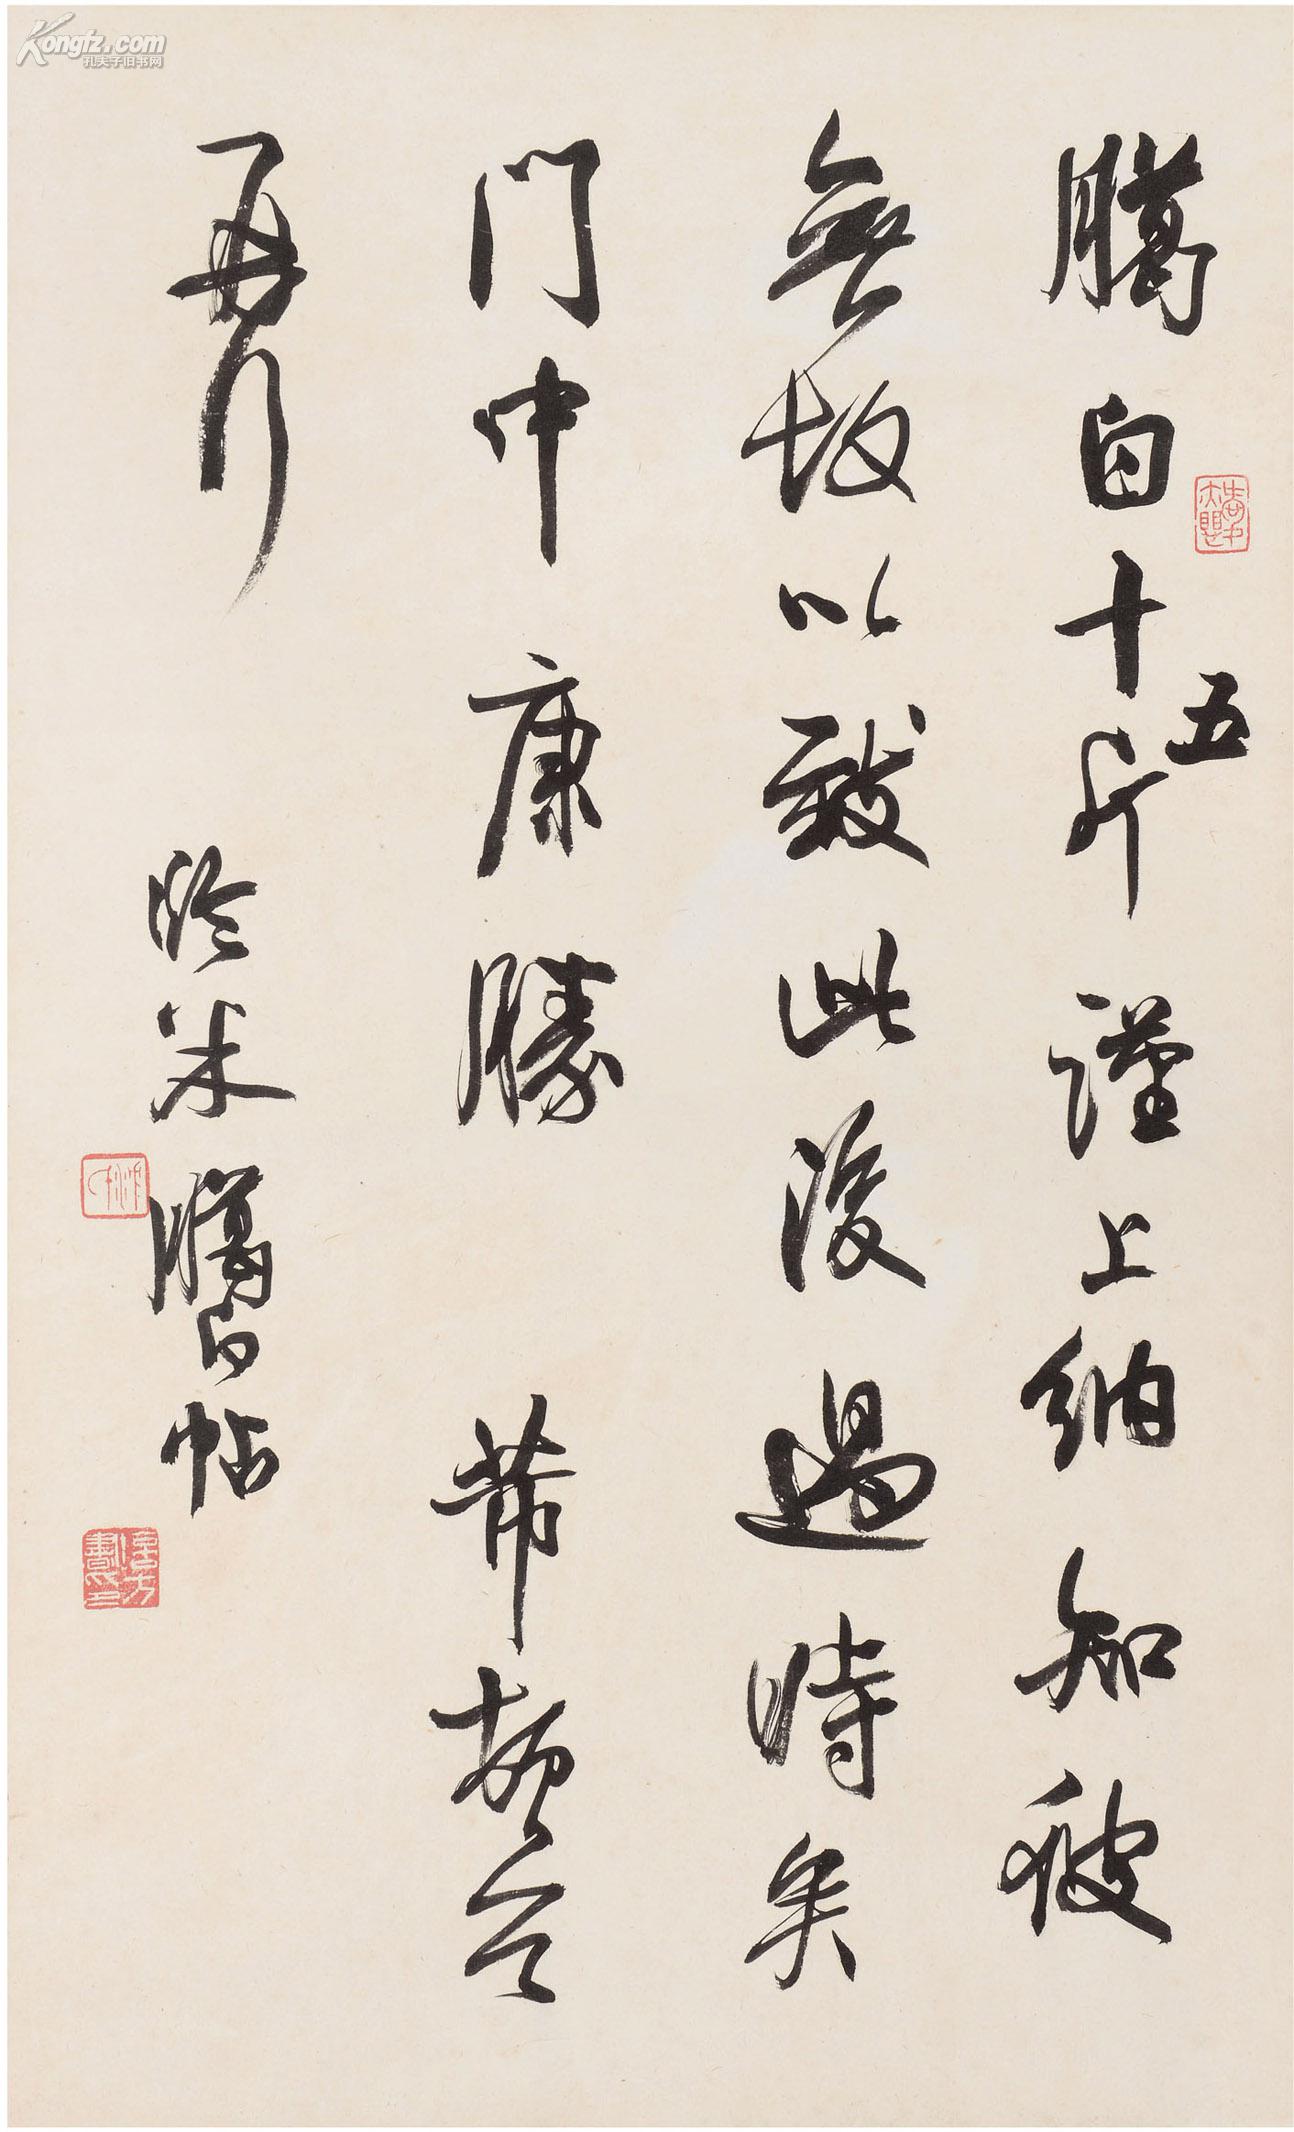 臈白十五斤謹上納知彼
無故以致此後過時矣
門中康勝 芾頓首
再行
臨米臈白帖
Kongfz.com
孔夫子旧书网